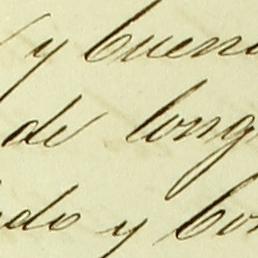 y buen
de long
do y bon